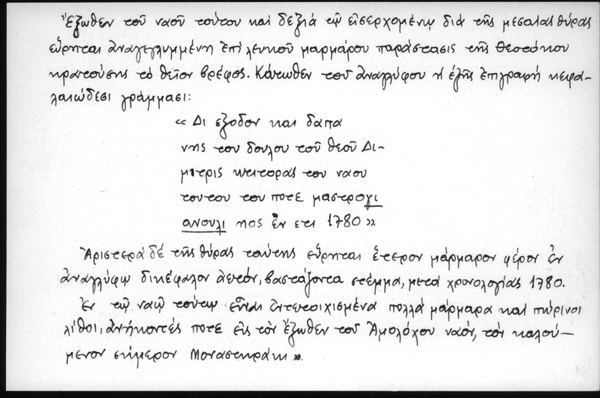 Ἔξωθεν τοῦ ναοῦ τούτου καὶ δεξιά τῷ εἰσερχομένῳ διά τῆς μεσαίας θύρας
εὕρηται ἀναγεγλυμμένη ἐπί λευκοῦ μαρμάρου παράστασις τῆς Θεοτόκου
κρατούσης τὸ θεῖον βρέφος. Κάτωθεν τοῦ ἀναγλύφου ἡ ἑξῆς ἐπιγραφή κεφα-
λαιώδεσι γράμμασι:
« Δι εξοδον και δαπα
νης του δουλου τοῦ θεοῦ Δι-
μιτρις κτιτορας του ναου
τουτου του ποτε μαστρογι
ανουλι προς ἐν ετι 1780 »
Ἀριστερά δέ τῆς θύρας ταύτης εὕρηται ἕτερον μάρμαρον φέρον ἐν
ἀναγλύφῳ δικέφαλον ἀετόν, βαστάζοντα στέμμα, μετά χρονολογίας 1780.
Ἐν τῷ ναῷ τούτῳ εἶναι ἐντετοιχισμένα πολλά μάρμαρα καί πώρινοι
λίθοι, ἀνήκοντές ποτε εἰς τὸν ἔξωθεν τοῦ Ἀμολόχου ναόν, τὸν καλού-
μενον σήμερον Μοναστηράκι ».